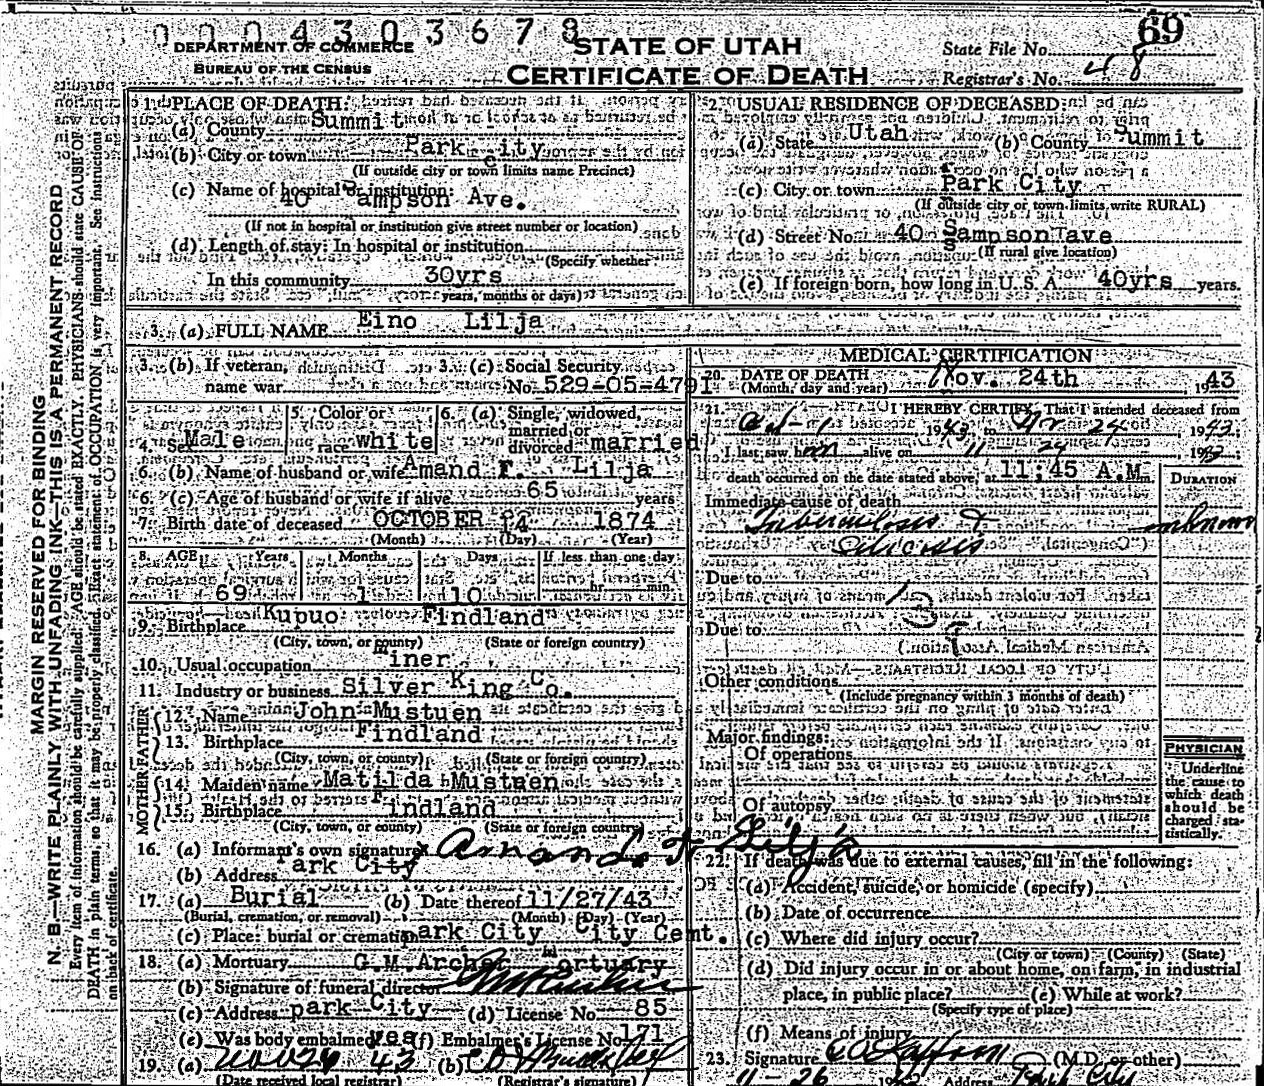 0004303678
69
DEPARTMENT OF COMMERCE
BUREAU OF THE CENSUS
STATE OF UTAH
CERTIFICATE OF DEATH
State File No.
Registrar's No. 48
MARGIN RESERVED FOR BINDING
N. B.—WRITE PLAINLY WITH UNFADING INK—THIS IS A PERMANENT RECORD
Every item of information should be carefully supplied. AGE should be stated EXACTLY. PHYSICIANS should state CAUSE OF
DEATH in plain terms, so that it may be properly classified. Exact statement of OCCUPATION is very important. See instructions
on back of certificate.
1. PLACE OF DEATH:
(a) County Summit
(b) City or town Park City
(If outside city or town limits name Precinct)
(c) Name of hospital or institution:
40 Sampson Ave.
(If not in hospital or institution give street number or location)
(d) Length of stay: In hospital or institution
(Specify whether
In this community 30yrs
years, months or days)
2. USUAL RESIDENCE OF DECEASED:
(a) State Utah (b) County Summit
(c) City or town Park City
(If outside city or town limits write RURAL)
(d) Street No. 40 Sampson ave
(If rural give location)
(e) If foreign born, how long in U. S. A. 40yrs years.
3. (a) FULL NAME Eino Lilja
3. (b) If veteran, name war
3. (c) Social Security No. 529-05-4791
4. Sex Male
5. Color or race white
6. (a) Single, widowed, married or divorced married
6. (b) Name of husband or wife Amand F. Lilja
6. (c) Age of husband or wife if alive 65 years
7. Birth date of deceased OCTOBER 14 1874
(Month) (Day) (Year)
8. AGE Years Months Days If less than one day
69 1 10 hr. min.
9. Birthplace Kupuo Findland
(City, town, or county) (State or foreign country)
10. Usual occupation Miner
11. Industry or business Silver King Co.
FATHER
12. Name John Mustuen
13. Birthplace Findland
(City, town, or county) (State or foreign country)
MOTHER
14. Maiden name Matilda Musteen
15. Birthplace Findland
(City, town, or county) (State or foreign country)
16. (a) Informant's own signature x Amanda F Lilja
(b) Address park City
17. (a) Burial (b) Date thereof 11/27/43
(Burial, cremation, or removal) (Month) (Day) (Year)
(c) Place: burial or cremation park City City Cemt.
18. (a) Mortuary G.M.Archer Mortuary
(b) Signature of funeral director
(c) Address park City (d) License No. 85
(e) Was body embalmed yes (f) Embalmer's License No. 171
19. (a) 43 (b)
(Date received local registrar) (Registrar's signature)
MEDICAL CERTIFICATION
20. DATE OF DEATH
(Month, day and year) Nov. 24th 1943
21. I HEREBY CERTIFY, That I attended deceased from
Oct-1 1943, to 24 1943;
I last saw him alive on 11 24 1943;
death occurred on the date stated above, at 11;45 A.M m.
DURATION
Immediate cause of death
Tuberculosis & unknown
Silicosis
Due to
13
Due to
Other conditions
(Include pregnancy within 3 months of death)
Major findings:
Of operations
Of autopsy
PHYSICIAN
Underline the cause to which death should be charged statistically.
22. If death was due to external causes, fill in the following:
(a) Accident, suicide, or homicide (specify)
(b) Date of occurrence
(c) Where did injury occur?
(City or town) (County) (State)
(d) Did injury occur in or about home, on farm, in industrial
place, in public place? (e) While at work?
(Specify type of place)
(f) Means of injury
23. Signature (M.D. or other)
11-26 Address Park City